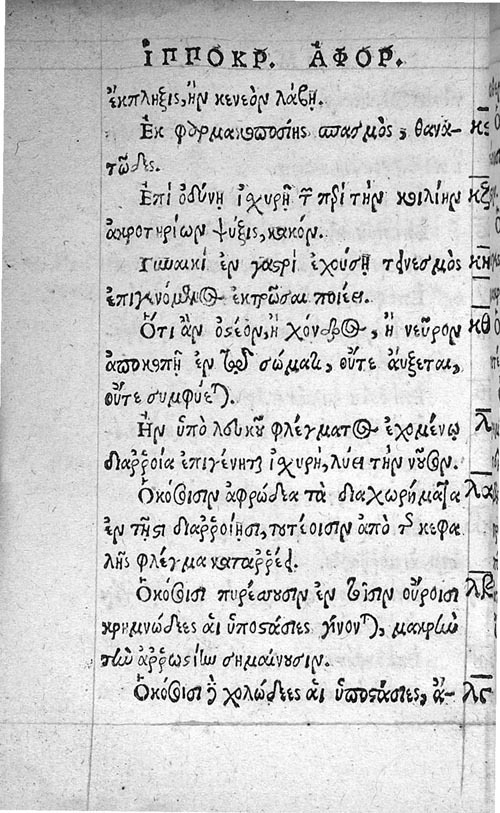 ΙΠΠΟΚΡ. ΑΦΟΡ.
ἔκπληξις, ἢν κενεὸν λάβῃ.
Ἐκ φαρμακοποσίης σπασμὸς, θανα- κϛ
τῶδες.
Ἐπὶ ὀδύνῃ ἰσχυρῇ τῶν περὶ τὴν κοιλίην κζ
ἀκροτηρίων ψύξις, κακόν.
Γυναικὶ ἐν γαστρὶ ἐχούσῃ τεινεσμὸς κη
ἐπιγενόμενος ἐκτρῶσαι ποιέει.
Ὅτι ἂν ὀστέον, ἢ χόνδρος, ἢ νεῦρον κθ
ἀποκοπῇ ἐν τῷ σώματι, οὔτε αὔξεται,
οὔτε συμφύεται.
Ἢν ὑπὸ λευκοῦ φλέγματος ἐχομένῳ λ
διάῤῥοια ἐπιγένηται ἰσχυρὴ, λύει τὴν νοῦσον.
Ὁκόσοισιν ἀφρώδεα τὰ διαχωρήματα λα
ἐν τῇσι διαῤῥοίῃσι, τουτέοισιν ἀπὸ τῆς κεφα
λῆς φλέγμα καταῤῥέει.
Ὁκόσοισι πυρέσσουσιν ἐν τοῖσιν οὔροισι λβ
κρημνώδεες αἱ ὑποστάσιες γίνονται, μακρὴν
τὴν ἀῤῥωστίην σημαίνουσιν.
Ὁκόσοισι δὲ χολώδεες αἱ ὑποστάσιες, ἄ- λς